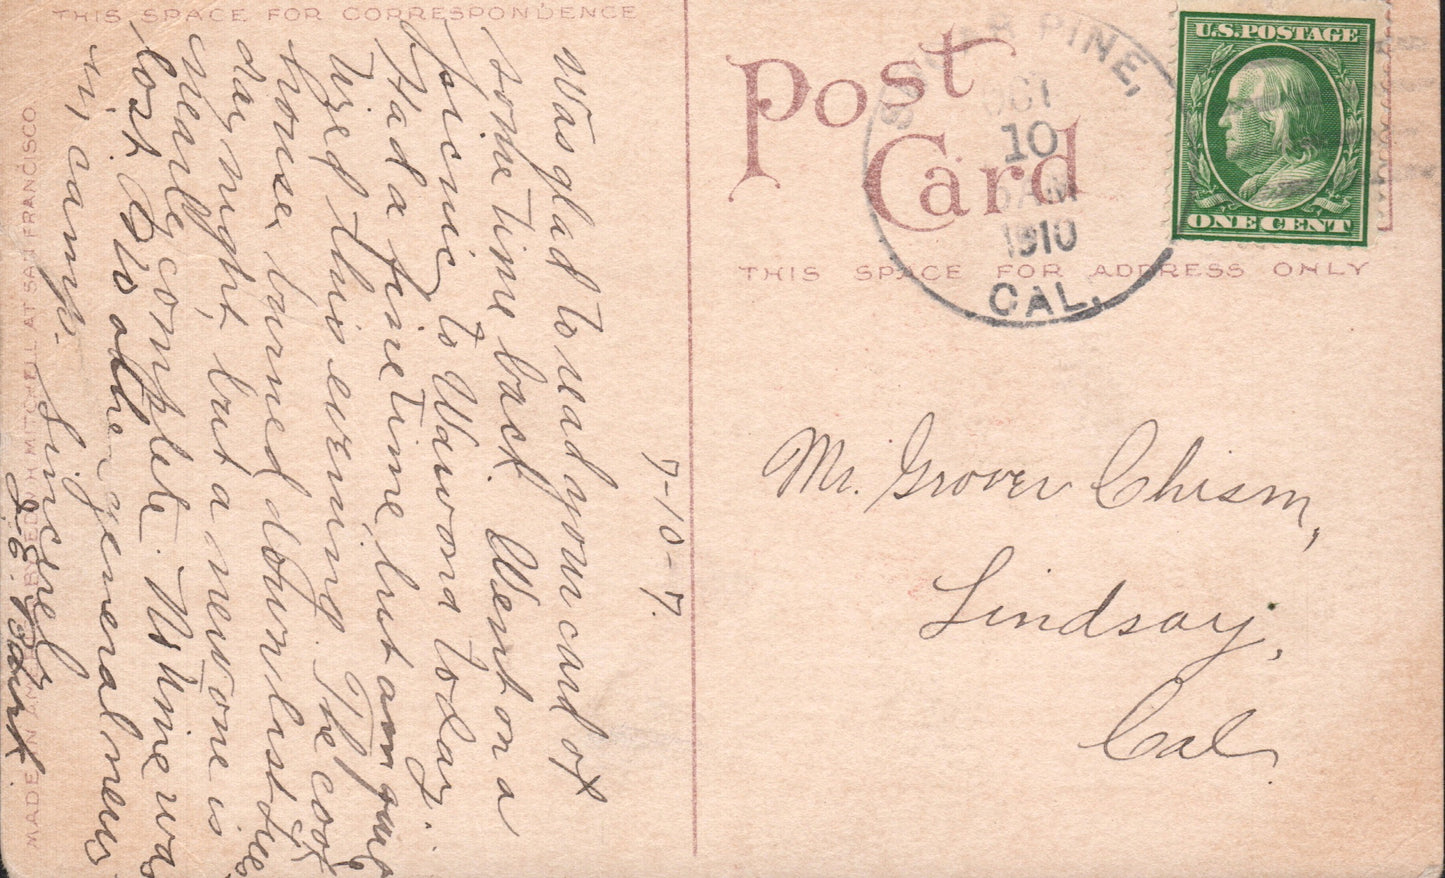 THIS SPACE FOR CORRESPONDENCE
Post
Card
THIS SPACE FOR ADDRESS ONLY
PINE,
OCT
10
AM
1910
CAL.
U.S. POSTAGE
ONE CENT
Mr. Grover Chism,
Lindsay,
Cal.
7-10-7.
Was glad to read your card of
some time back. Went on a
picnic to Wawona today.
Had a fine time, but am quite
tired this evening. The cook
house burned down last tues
day night, but a new one is
nearly complete. M. Mine was
lost also all the general mdse
in camp.
Sincerely
MADE IN AM BY EDW H MITCHELL AT SAN FRANCISCO